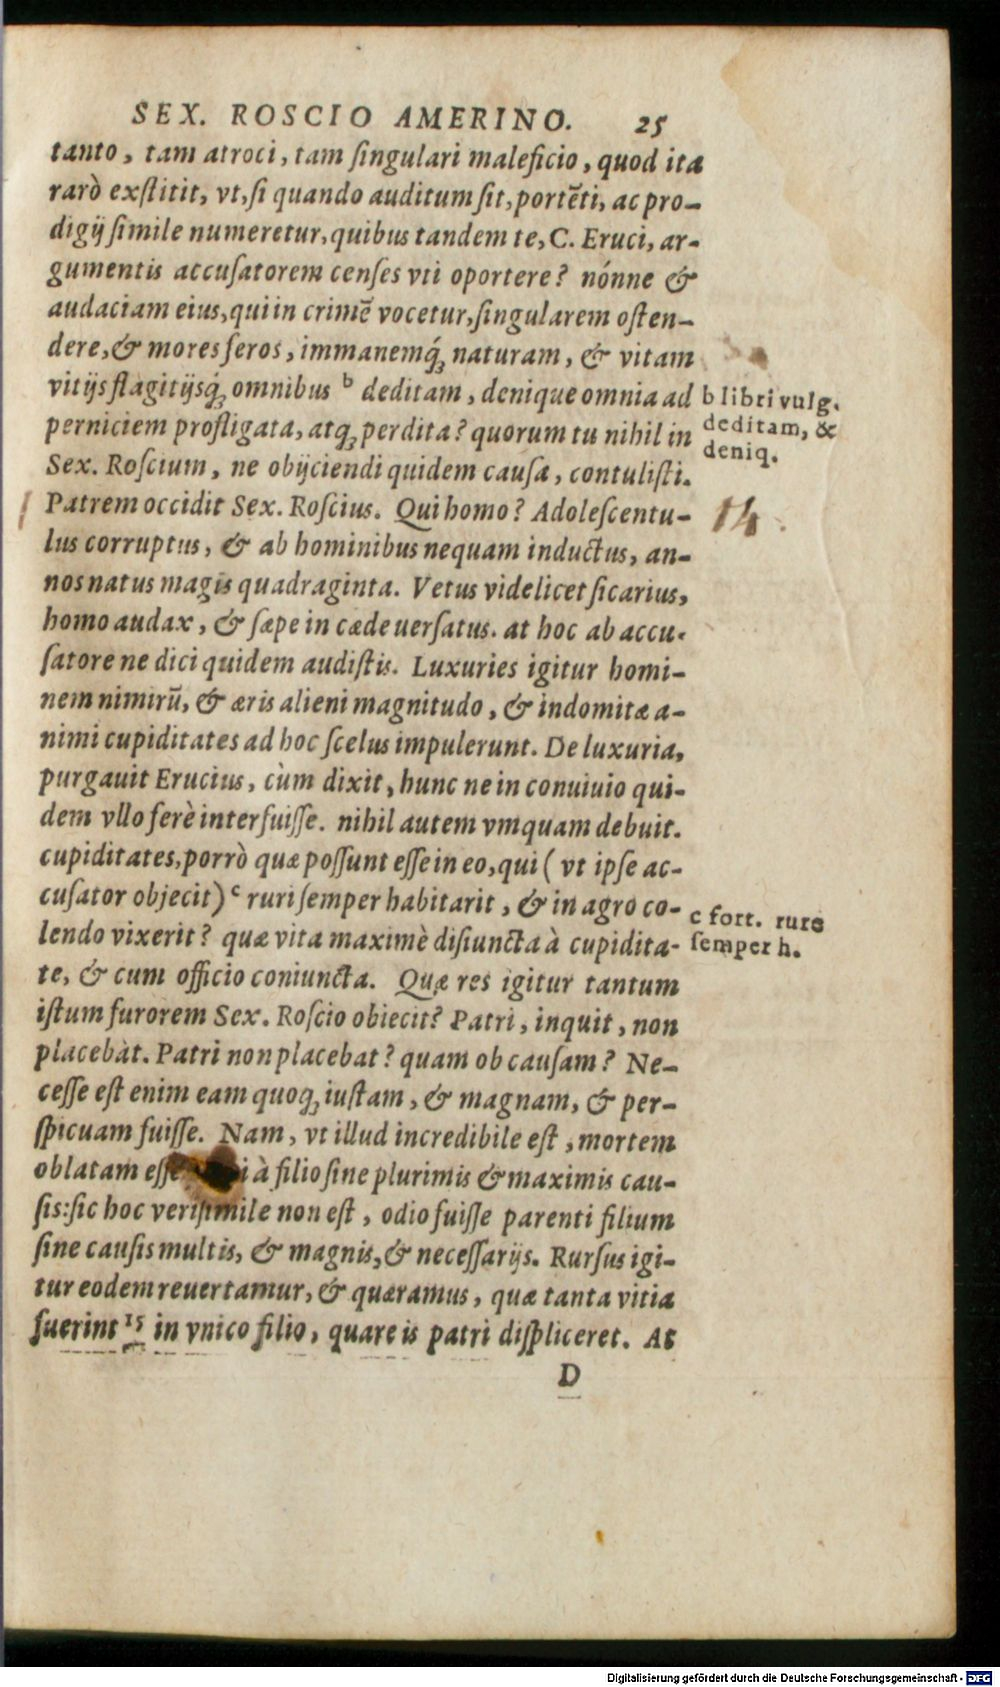 SEX. ROSCIO AMERINO. 25
tanto, tam atroci, tam ſingulari maleficio, quod ita
rarò exſtitit, vt, ſi quando auditum ſit, portẽti, ac pro-
digij ſimile numeretur, quibus tandem te, C. Eruci, ar-
gumentis accuſatorem cenſes vti oportere? nónne &
audaciam eius, qui in crimẽ vocetur, ſingularem oſten-
dere, & mores feros, immanemq́ꝫ naturam, & vitam
vitijs flagitijsq́ꝫ omnibus ᵇ deditam, denique omnia ad
b libri vulg.
deditam, &
deniq.
perniciem profligata, atqꝫ perdita? quorum tu nihil in
Sex. Roſcium, ne obijciendi quidem cauſa, contuliſti.
Patrem occidit Sex. Roſcius. Qui homo? Adoleſcentu-
14
lus corruptus, & ab hominibus nequam inductus, an-
nos natus magis quadraginta. Vetus videlicet ſicarius,
homo audax, & ſæpe in cæde uerſatus. at hoc ab accu-
ſatore ne dici quidem audiſtis. Luxuries igitur homi-
nem nimirũ, & æris alieni magnitudo, & indomitæ a-
nimi cupiditates ad hoc ſcelus impulerunt. De luxuria,
purgauit Erucius, cùm dixit, hunc ne in conuiuio qui-
dem vllo ferè interfuiſſe. nihil autem vmquam debuit.
cupiditates, porrò quæ poſſunt eſſe in eo, qui (vt ipſe ac-
cuſator objecit) ᶜ ruri ſemper habitarit, & in agro co-
c fort. rure
ſemper h.
lendo vixerit? quæ vita maximè diſiuncta à cupidita-
te, & cum officio coniuncta. Quæ res igitur tantum
iſtum furorem Sex. Roſcio obiecit? Patri, inquit, non
placebat. Patri non placebat? quam ob cauſam? Ne-
ceſſe eſt enim eam quoqꝫ iuſtam, & magnam, & per-
ſpicuam fuiſſe. Nam, vt illud incredibile eſt, mortem
oblatam eſſe à filio ſine plurimis & maximis cau-
ſis: ſic hoc veriſimile non eſt, odio fuiſſe parenti filium
ſine cauſis multis, & magnis, & neceſſarijs. Rurſus igi-
tur eodem reuertamur, & quæramus, quæ tanta vitia
fuerint ¹⁵ in vnico filio, quare is patri diſpliceret. At
D
Digitalisierung gefördert durch die Deutsche Forschungsgemeinschaft - DFG